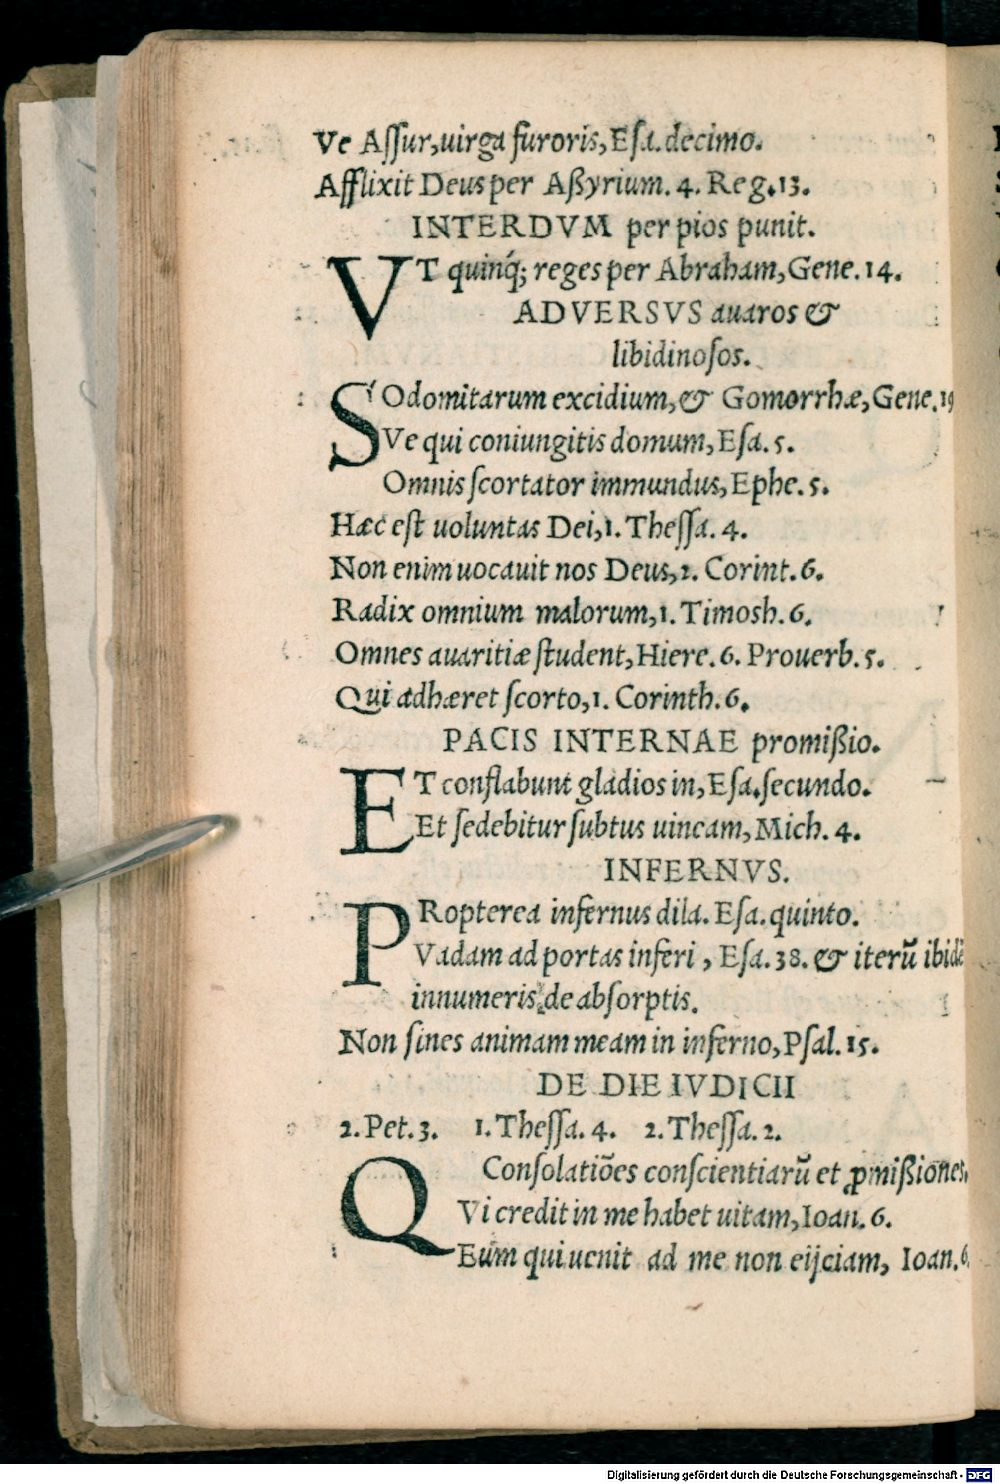 Ve Aſſur,uirga furoris,Eſa.decimo.
Afflixit Deus per Aßyrium. 4. Reg.13.
INTERDVM per pios punit.
VT quinq́; reges per Abraham,Gene.14.
ADVERSVS auaros &
libidinoſos.
SOdomitarum excidium,& Gomorrhæ,Gene.19
Ve qui coniungitis domum,Eſa.5.
Omnis ſcortator immundus,Ephe.5.
Hæc eſt uoluntas Dei,1. Theſſa. 4.
Non enim uocauit nos Deus,2. Corint.6.
Radix omnium malorum,1. Timosh.6.
Omnes auaritiæ ſtudent,Hiere.6. Prouerb.5.
Qui adhæret ſcorto,1. Corinth.6.
PACIS INTERNAE promißio.
ET conflabunt gladios in,Eſa.ſecundo.
Et ſedebitur ſubtus uineam,Mich. 4.
INFERNVS.
PRopterea infernus dila. Eſa.quinto.
Vadam ad portas inferi , Eſa.38.& iterū ibidē
innumeris de abſorptis.
Non ſines animam meam in inferno,Pſal.15.
DE DIE IVDICII
2.Pet.3. 1.Theſſa.4. 2.Theſſa.2.
Conſolatiões conſcientiarū et ꝓmißiones.
QVi credit in me habet uitam,Ioan.6.
Eum qui uenit ad me non eijciam, Ioan.6.
Digitalisierung gefördert durch die Deutsche Forschungsgemeinschaft - DFG